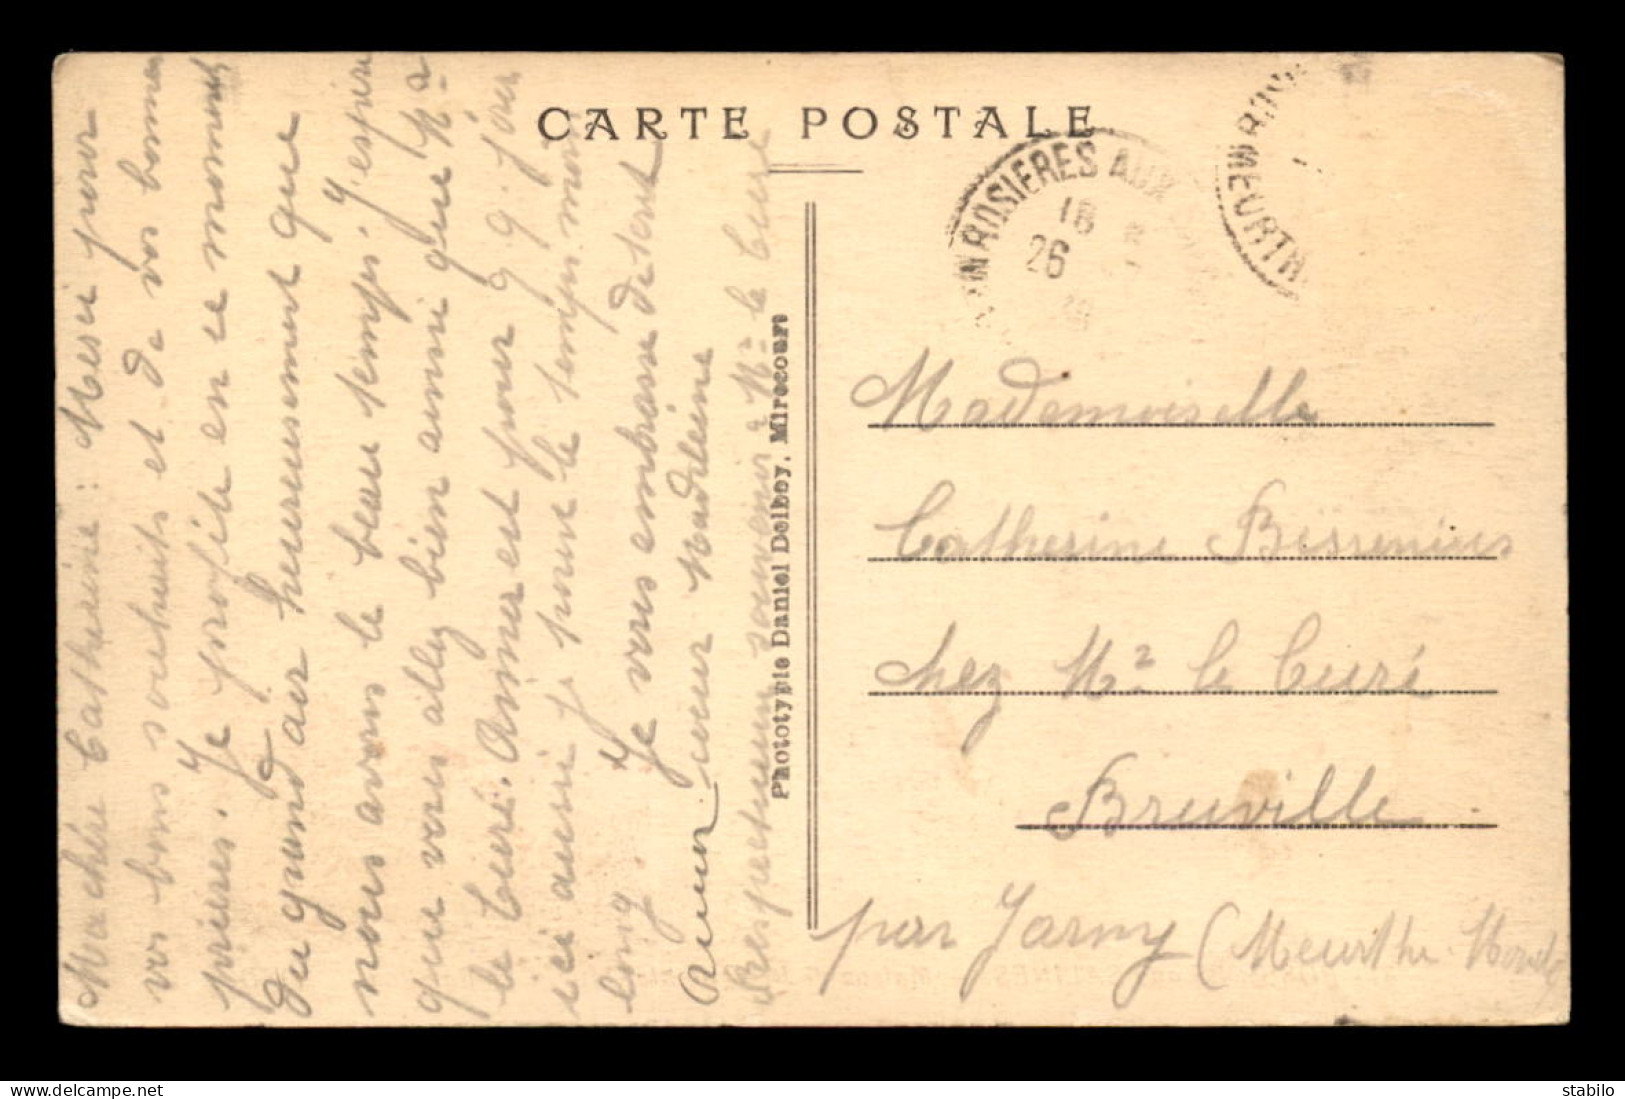 CARTE POSTALE
Ma chère Catherine : Merci pour
vos bons souhaits et de vos bonnes
prières. Je profite en ce moment
du grand air heureusement que
nous avons le beau temps. J'espère
que vous allez bien ainsi que Mr
le Curé. Aimer est pour q.q. jours
ici aussi je pour le temps moins
long.
Je vous embrasse de tout
cœur Madeleine
Respectueux souvenir à Mr le Curé
Phototypie Daniel Delboy, Mirecourt
ROSIERES AUX
18
26
MEURTH
Mademoiselle
Catherine
chez Mr le Curé
Bruville
par Jarny (Meurthe Moselle
stabilo